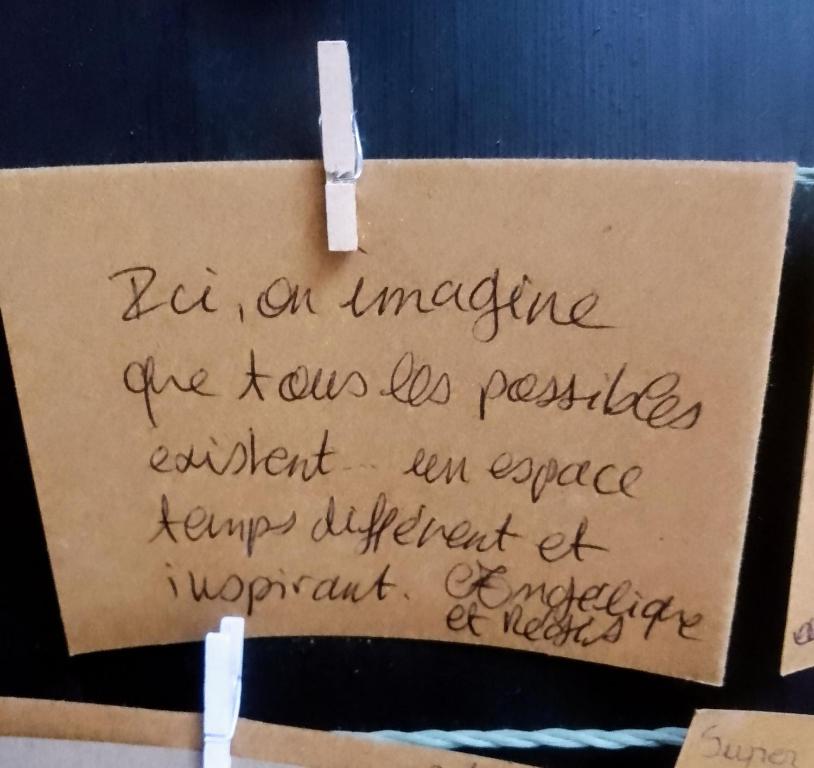 Ici, on imagine
que tous les possibles
existent... un espace
temps différent et
inspirant. Angélique
et
Super